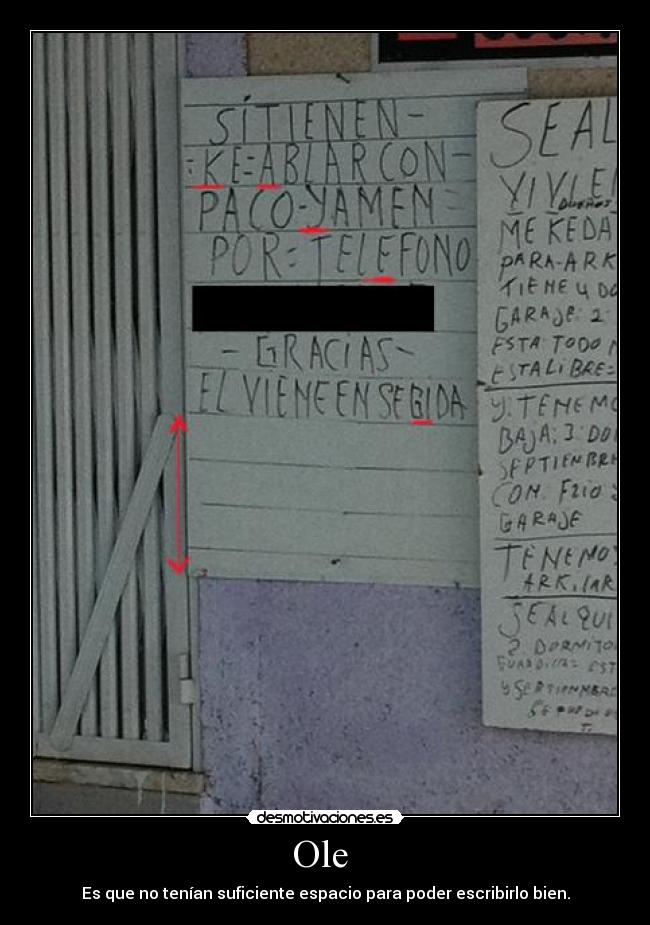 SÍTIENEN-
:KE=ABLAR CON-
PACO-YAMEN=
POR=TELEFONO
-GRACIAS-
EL VIENE EN SEGIDA
SEAL
YIVLE
ME KEDA
PARA-ARK
TIENE 4 DO
GARAJE: 2:
ESTA TODO
ESTALIBRE=
Y:TENEMO
BAJA:3:DO
SEPTIEMBRE
CON. FZIO Y
GARAJE
TENEMOS
ARK,IAR
SEALQUI
2 DORMITO
EST
desmotivaciones.es
Ole
Es que no tenían suficiente espacio para poder escribirlo bien.